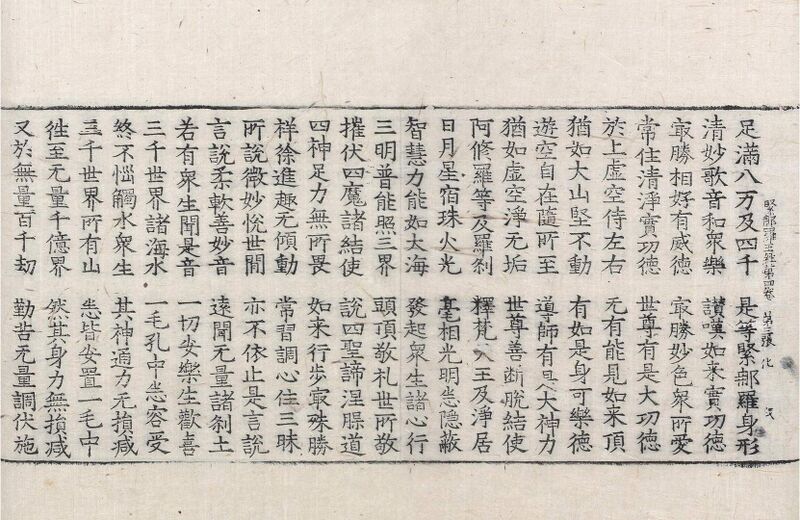 足滿八万及四千 是等緊那羅身形
清妙歌音和衆樂 讃嘆如来實功徳
㝡勝相好有威徳 㝡勝妙色衆所愛
常住清淨實功徳 世尊有是大功徳
於上虛空侍左右 无有能見如来頂
猶如大山堅不動 有如是身可樂徳
遊空自在隨所至 導師有是大神力
猶如虛空淨无垢 世尊善断脫結使
阿修羅等及羅刹 釋梵天王及淨居
日月星宿珠火光 毫相光明悉隱蔽
智慧力能如大海 發起衆生諸心行
三明普能照三界 頭頂敬礼世所敬
摧伏四魔諸結使 說四聖諦涅槃道
四神足力無所畏 如来行步㝡殊勝
祥徐進趣无傾動 常習調心住三昧
所說微妙悅世間 亦不依止是言說
言說柔軟善妙音 遠聞无量諸刹土
若有衆生聞是音 一切安樂生歡喜
三千世界諸海水 一毛孔中悉容受
終不惱觸水衆生 其神通力无損減
三千世界所有山 悉皆安置一毛中
徃至无量千億界 然其身力無損減
又於無量百千劫 勤苦无量調伏施